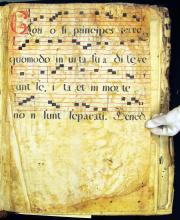 Glori o si principes terre
quomodo in uita su a di lexe
runt se, i ta et in mor te
no n sunt separati. Bened.